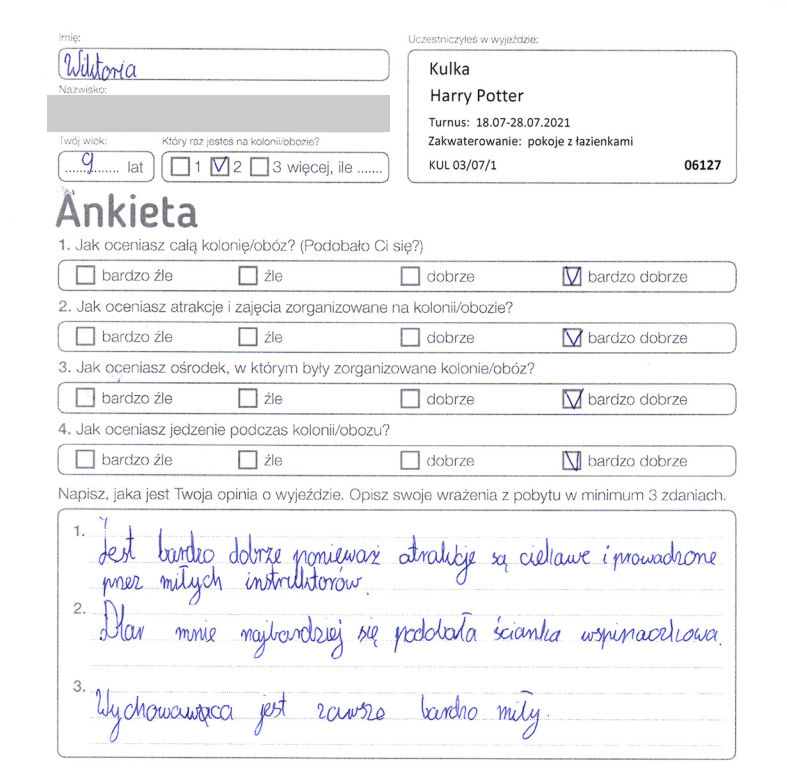 Imię:
Wiktoria
Nazwisko:
Twój wiek:
9 lat
Który raz jesteś na kolonii/obozie?
1 2 3 więcej, ile .......
Uczestniczyłeś w wyjeździe:
Kulka
Harry Potter
Turnus: 18.07-28.07.2021
Zakwaterowanie: pokoje z łazienkami
KUL 03/07/1 06127
Ankieta
1. Jak oceniasz całą kolonię/obóz? (Podobało Ci się?)
bardzo źle źle dobrze bardzo dobrze
2. Jak oceniasz atrakcje i zajęcia zorganizowane na kolonii/obozie?
bardzo źle źle dobrze bardzo dobrze
3. Jak oceniasz ośrodek, w którym były zorganizowane kolonie/obóz?
bardzo źle źle dobrze bardzo dobrze
4. Jak oceniasz jedzenie podczas kolonii/obozu?
bardzo źle źle dobrze bardzo dobrze
Napisz, jaka jest Twoja opinia o wyjeździe. Opisz swoje wrażenia z pobytu w minimum 3 zdaniach.
1. Jest bardzo dobrze ponieważ atrakcje są ciekawe i prowadzone
przez miłych instruktorów.
2. Dla mnie najbardziej się podobała ścianka wspinaczkowa.
3. Wychowawca jest zawsze bardzo miły.